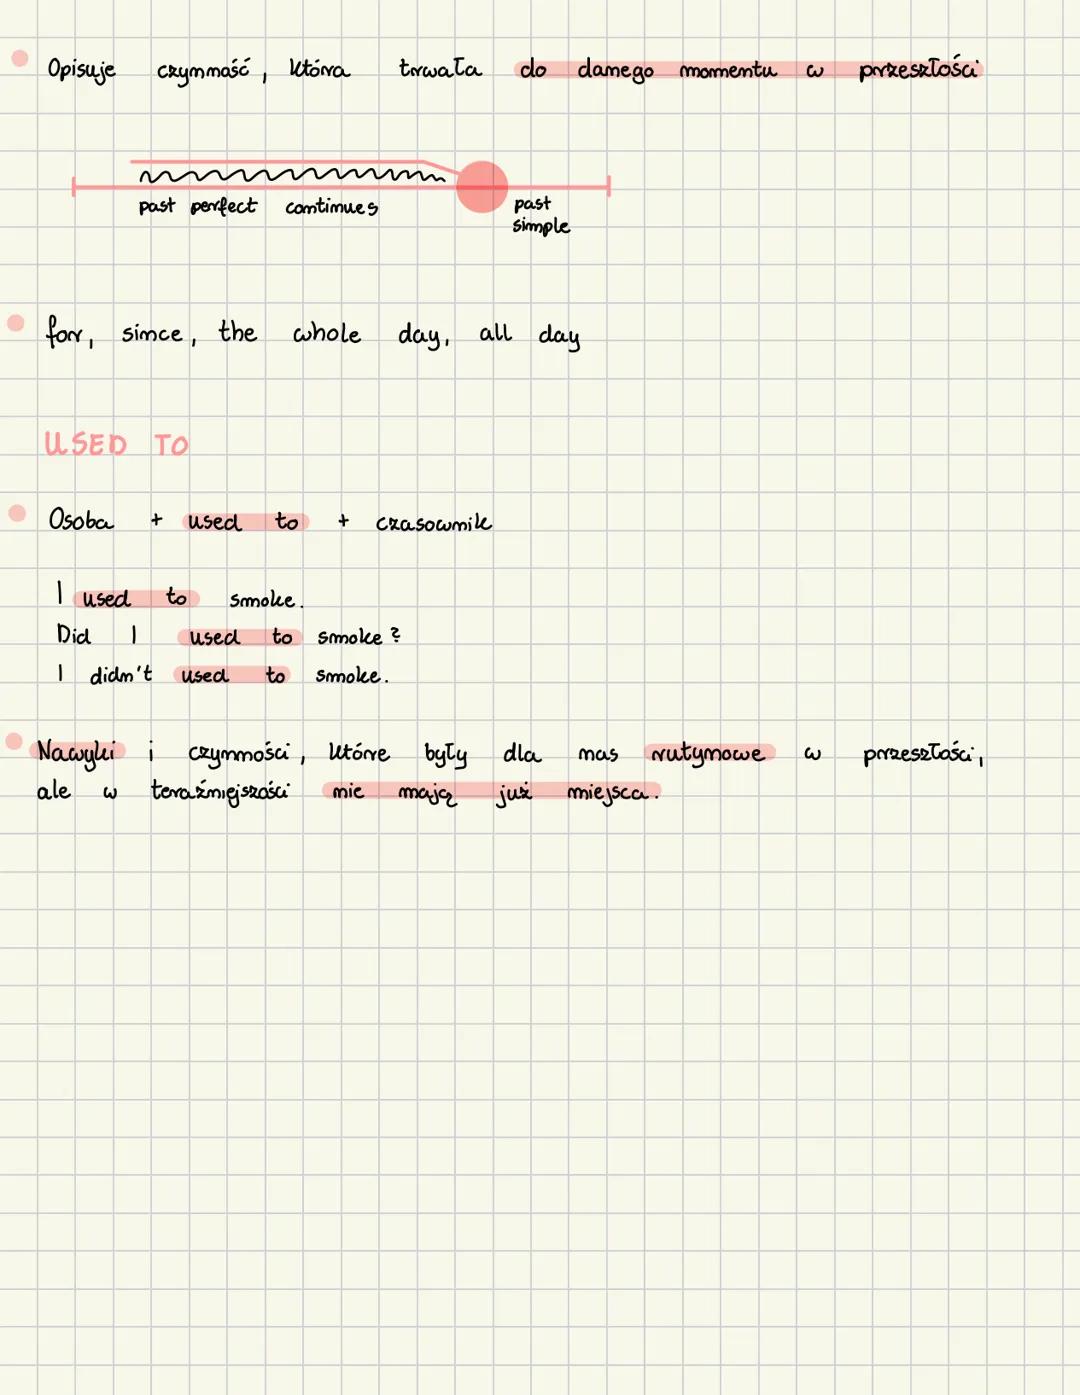 Opisuje czynność, która trwała do danego momentu w przeszłości
past perfect continues
past simple
for, since, the whole day, all day
USED TO
Osoba + used to + czasownik
I used to smoke.
Did I used to smoke?
I didn't used to smoke.
Nawyki i czynności, które były dla nas rutynowe w przeszłości,
ale w teraźniejszości nie mają już miejsca.